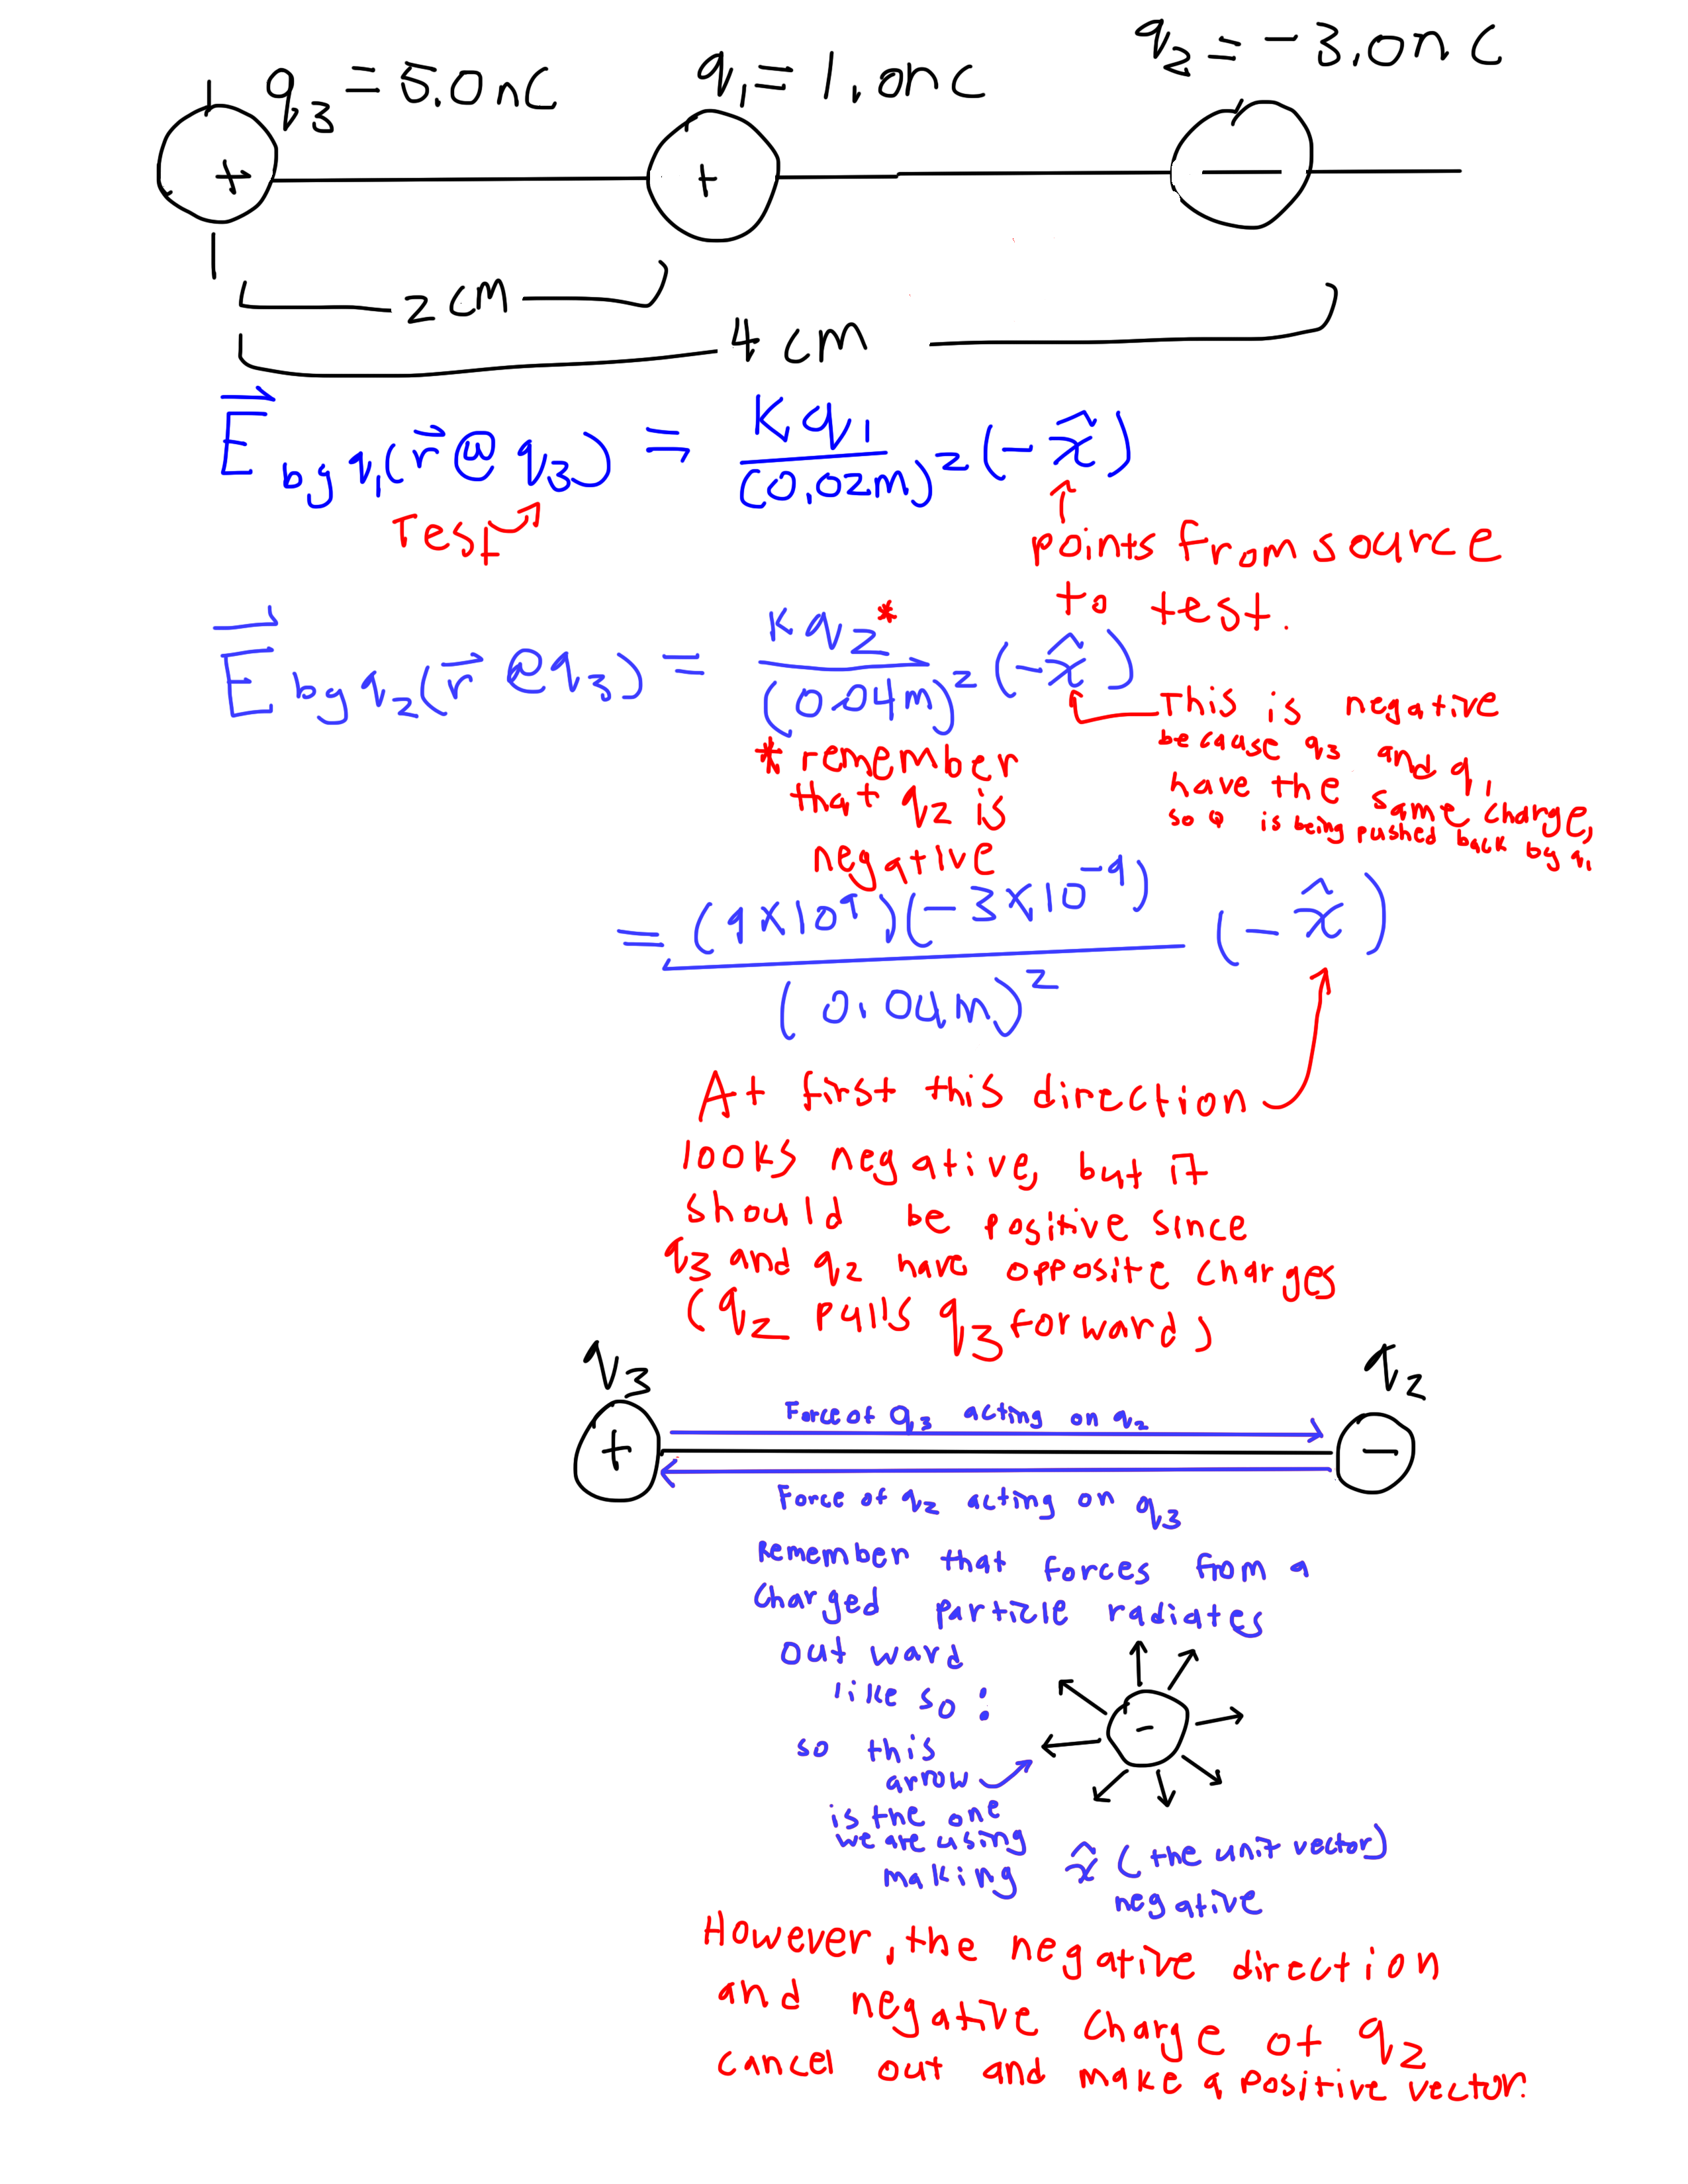 q₃ = 5.0nC
q₁ = 1.0nC
q₂ = -3.0nC
+
+
−
2 cm
4 cm
E⃗ by q₁(r⃗ @ q₃) = Kq₁/(0.02m)² (-x̂)
Test
points from source
to test.
E⃗ by q₂(r⃗ @ q₃) = Kq₂*/(0.04m)² (-x̂)
* remember
that q₂ is
negative
This is negative
because q₃ and q₁
have the same charge,
so is being pushed back by q₁
= (9×10⁹)(-3×10⁻⁹)/(0.04m)² (-x̂)
At first this direction
looks negative, but it
should be positive since
q₃ and q₂ have opposite charges
(q₂ pulls q₃ forward)
q₃
q₂
+
−
Force of q₃ acting on q₂
Force of q₂ acting on q₃
Remember that forces from a
charged particle radiates
out ward
like so :
−
so this
arrow
is the one
we are using
making x̂ (the unit vector)
negative
However, the negative direction
and negative charge of q₂
cancel out and make a positive vector.